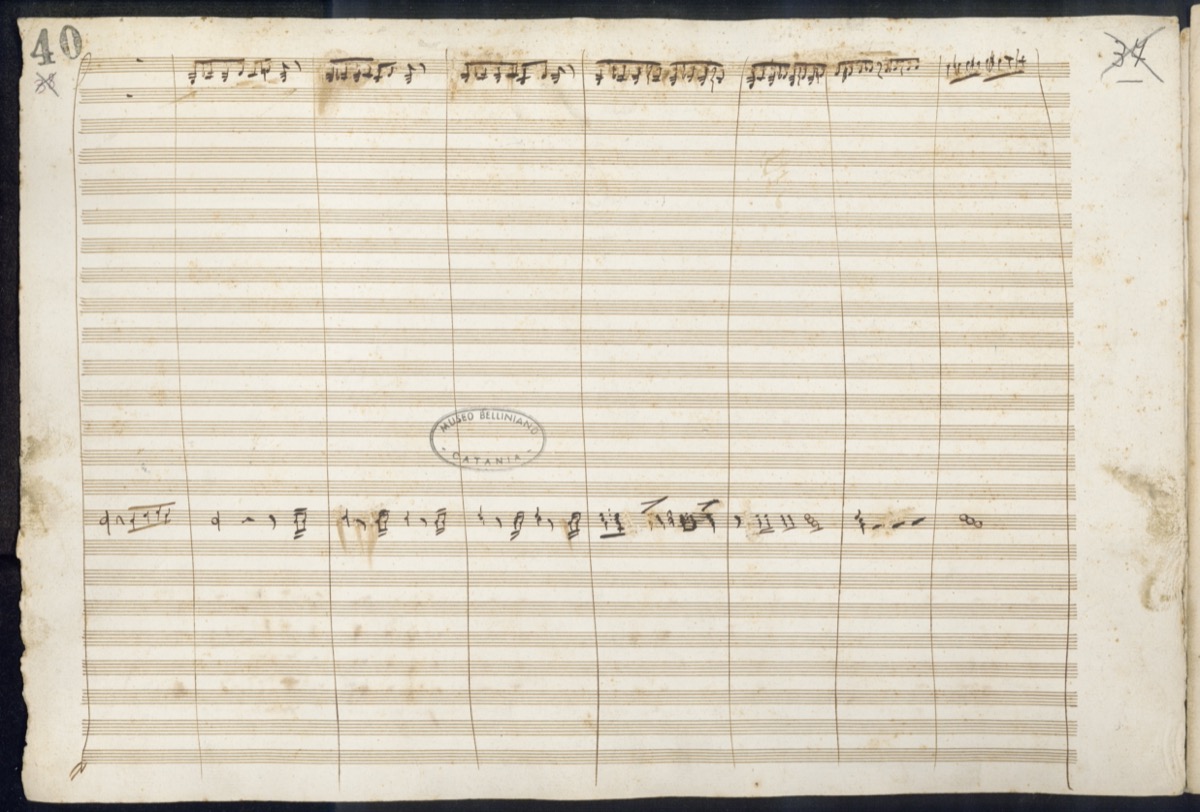 40
34
MUSEO BELLINIANO
CATANIA